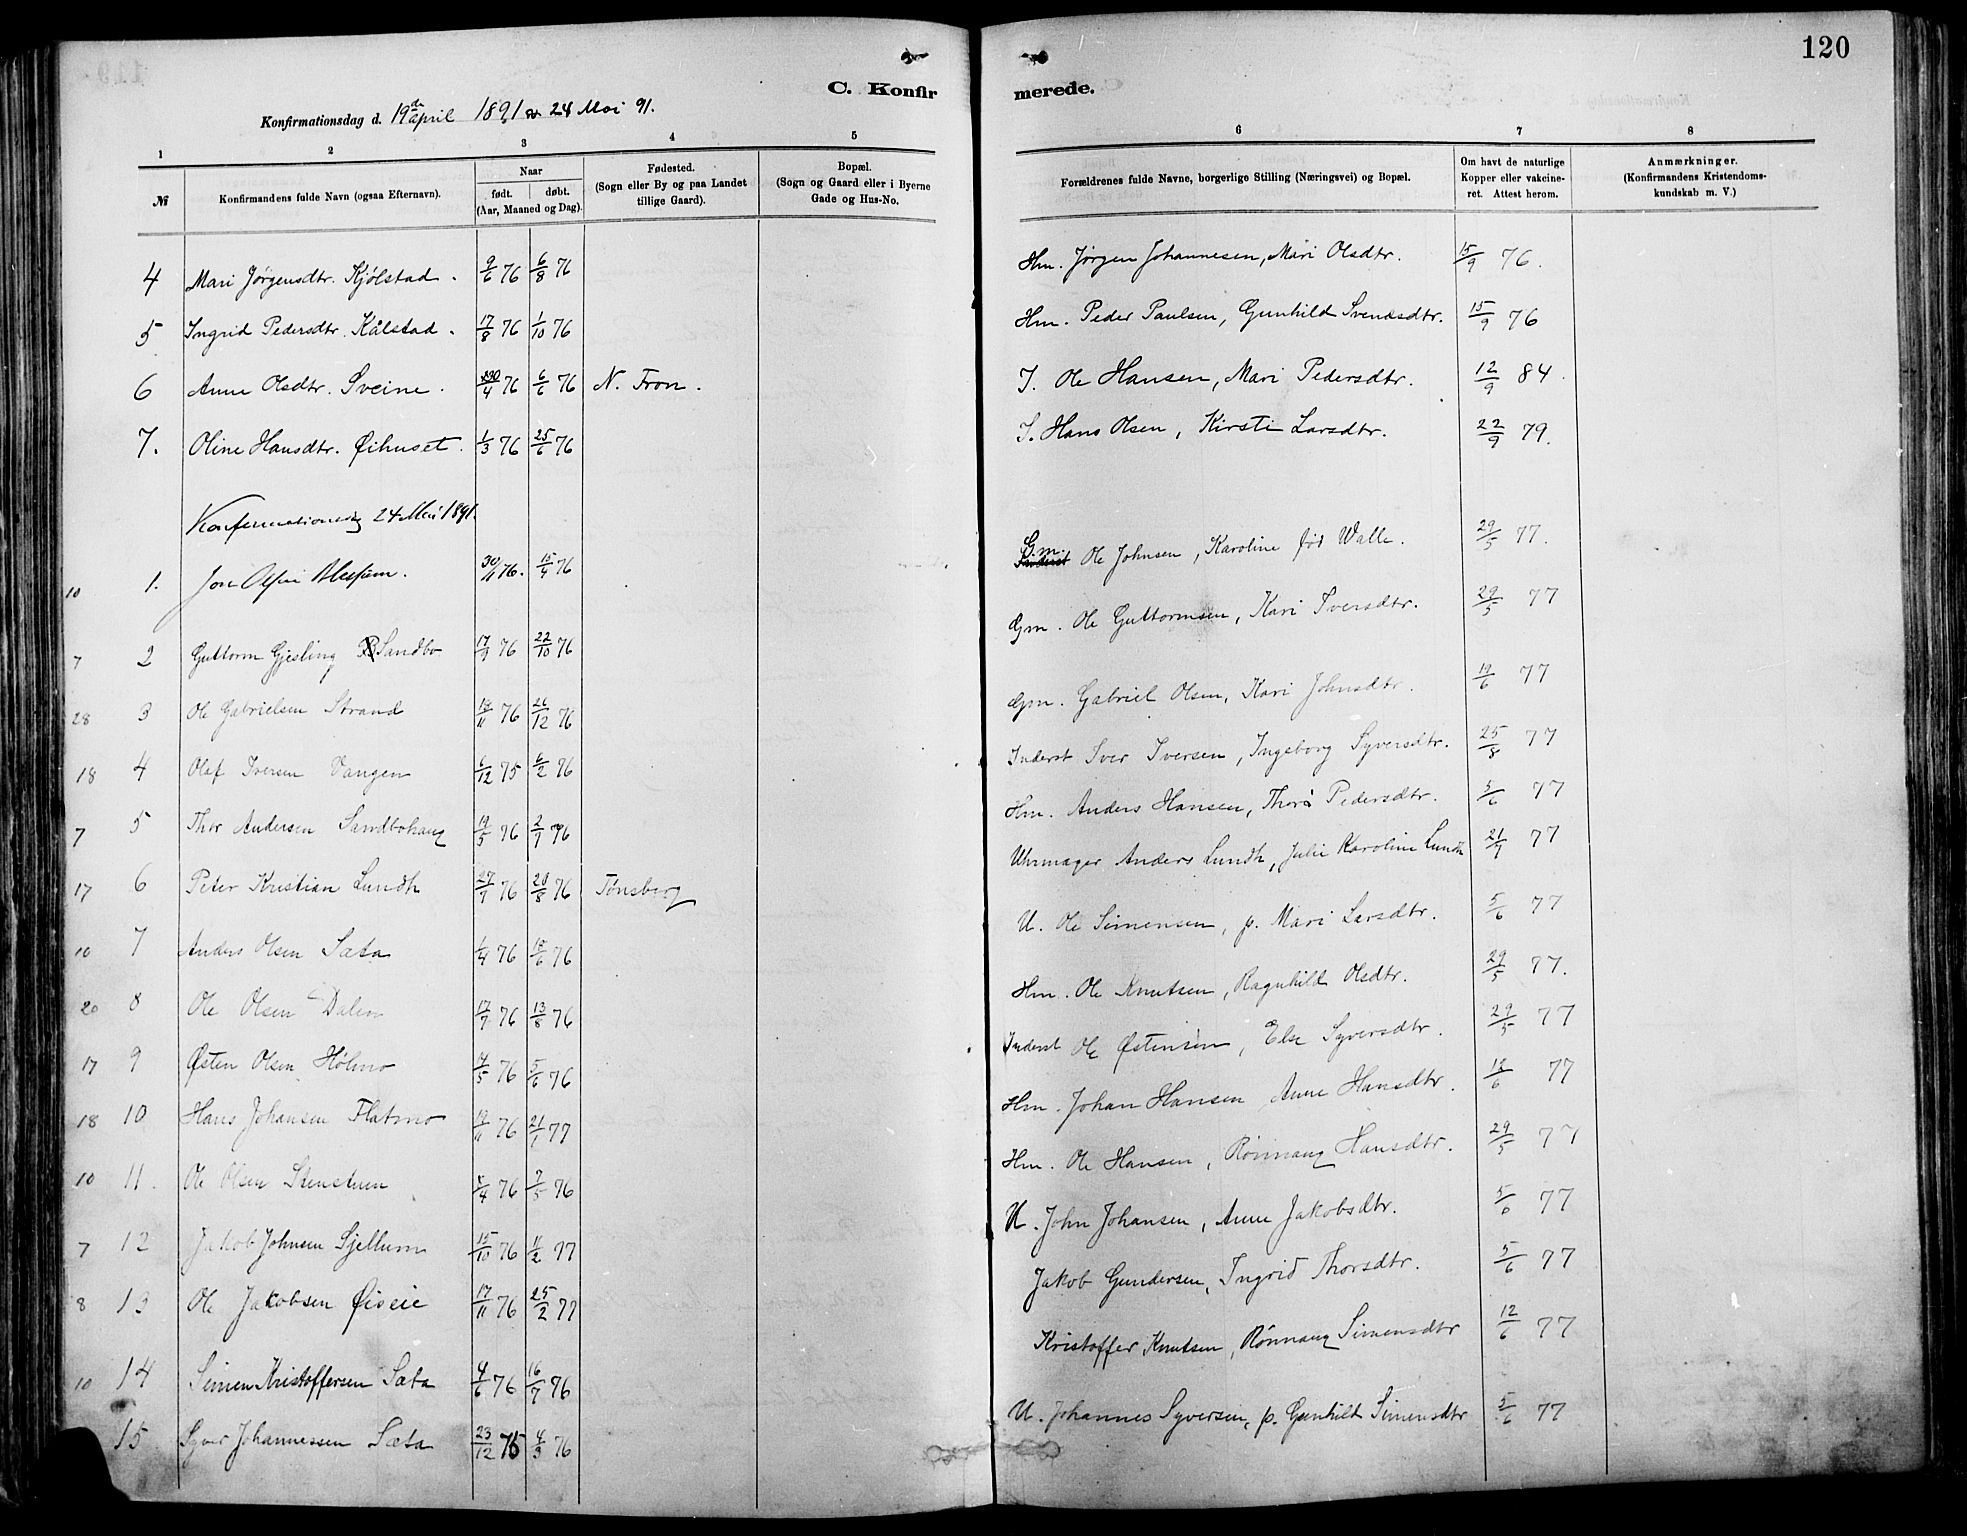 120
C. Konfirmerede.
Konfirmationsdag d. 19de april 1891 24 Mai 91.
1 2 3 4 5 6 7 8
№ Konfirmandens fulde Navn (ogsaa Efternavn). Naar født. døbt. (Aar, Maaned og Dag). Fødested. (Sogn eller By og paa Landet tillige Gaard). Bopæl. (Sogn og Gaard eller i Byerne Gade og Hus-No. Forældrenes fulde Navne, borgerlige Stilling (Næringsvei) og Bopæl. Om havt de naturlige Kopper eller vakcineret. Attest herom. Anmærkninger. (Konfirmandens Kristendomskundskab m. V.)
4 Mari Jørgensdtr. Kjølstad. 9/6 76 6/8 76 Hm. Jørgen Johannesen, Mari Olsdtr. 15/9 76.
5 Ingrid Pedersdtr. Kålstad. 17/8 76 1/10 76 Hm. Peder Paulsen, Gunhild Svendsdtr. 15/9 76
6 Anne Olsdtr. Sveine. /4 76 6/6 76 N. Fron. I. Ole Hansen, Mari Pedersdtr. 12/9 84.
7. Oline Hansdtr. Øihuset. 1/3 76 25/6 76 I. Hans Olsen, Kirsti Larsdtr. 22/9 79.
Konfirmationsdag 24 Mai 1891.
10 1. Jon Olsen 76. 15/4 76 G.m. Ole Johnsen, Karoline fød Walle. 29/5 77.
7 2 Guttorm Gjesling Sandbo 17/9 76 22/10 76 Gm. Ole Guttormsen, Kari Iversdtr. 29/5 77
28 3 Ole Gabrielsen Strand 19/11 76 26/12 76 Gm. Gabriel Olsen, Kari Johnsdtr. 19/6 77
18 4 Olaf Iversen Vangen 6/12 75 6/2 76 Inderst Iver Iversen, Ingeborg Syversdtr. 25/8 77
7 5 Thor Andersen Sandbohaug 19/5 76 2/7 76 Hm. Anders Hansen, Thora Pedersdtr. 5/6 77
17 6 Peter Kristian Lundh 27/7 76 20/8 76 Tønsberg Uhrmager Anders Lundh, Julie Karoline Lundh 21/7 77
10 7 Anders Olsen Sata 1/4 76 18/6 76 U. Ole Simensen, p. Mari Larsdtr. 5/6 77
20 8 Ole Olsen Dalen 17/7 76 13/8 76 Hm. Ole Knutsen, Ragnhild Olsdtr. 29/5 77.
17 9 Østen Olsen Hølmo 17/5 76 5/6 76 Inderst Ole Østensen, Else Syversdtr. 29/5 77
18 10 Hans Johansen Flatmo 19/11 76 21/1 77 Hm. Johan Hansen Anne Hansdtr. 18/6 77
10 11. Ole Olsen Stenstuen /4 76 7/5 76 Hm. Ole Hansen, Rønnaug Hansdtr. 29/5 77
7 12 Jakob Johnsen Sjellum 15/10 76 11/2 77 U. John Johansen, Anne Jakobsdtr. 5/6 77
8 13 Ole Jakobsen Øiseie 17/11 76 25/2 77 Jakob Gundersen, Ingrid Thorsdtr. 5/6 77
10 14 Simen Kristoffersen Sata 4/6 76 16/7 76 Kristoffer Knutsen, Rønnaug Simensdtr 12/6 77
15 Syver Johannessen Sata 23/12 75 4/3 76 U. Johannes Syversen, p. Gunhild Simensdtr 5/6 77